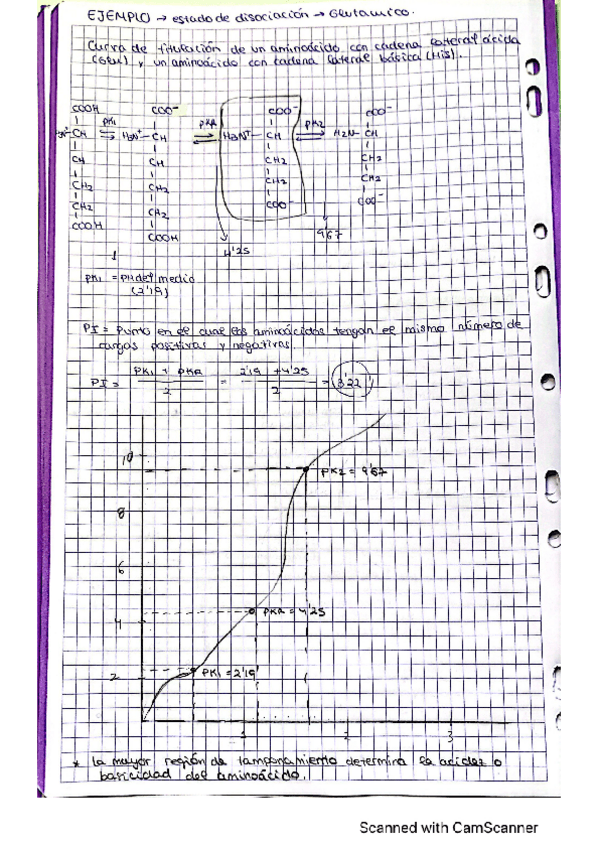 EJEMPLO → estado de disociación → Glutamico.
Curva de titulación de un aminoácido con cadena lateral ácida
(Glu) y un aminoácido con cadena lateral básica (His).
COOH COO⁻ COO⁻ COO⁻
pK1 pKR pK2
CH ⇌ H3N⁺ — CH ⇌ H3N⁺ — CH ⇌ H2N — CH
CH CH CH2 CH2
CH2 CH2 CH2 CH2
CH2 CH2 COO⁻ COO⁻
COOH COOH
4'25 9'67
1
pK1 = pH del medio
(2'19)
PI = Punto en el cual los aminoácidos tengan el mismo número de
cargas positivas y negativas.
PI = pK1 + pKR / 2 = 2'19 + 4'25 / 2 = 3'22
10
pK2 = 9'67
8
6
pKR = 4'25
4
pK1 = 2'19
2
1 2 3
* La mayor región de tamponamiento determina la acidez o
basicidad del aminoácido.
Scanned with CamScanner